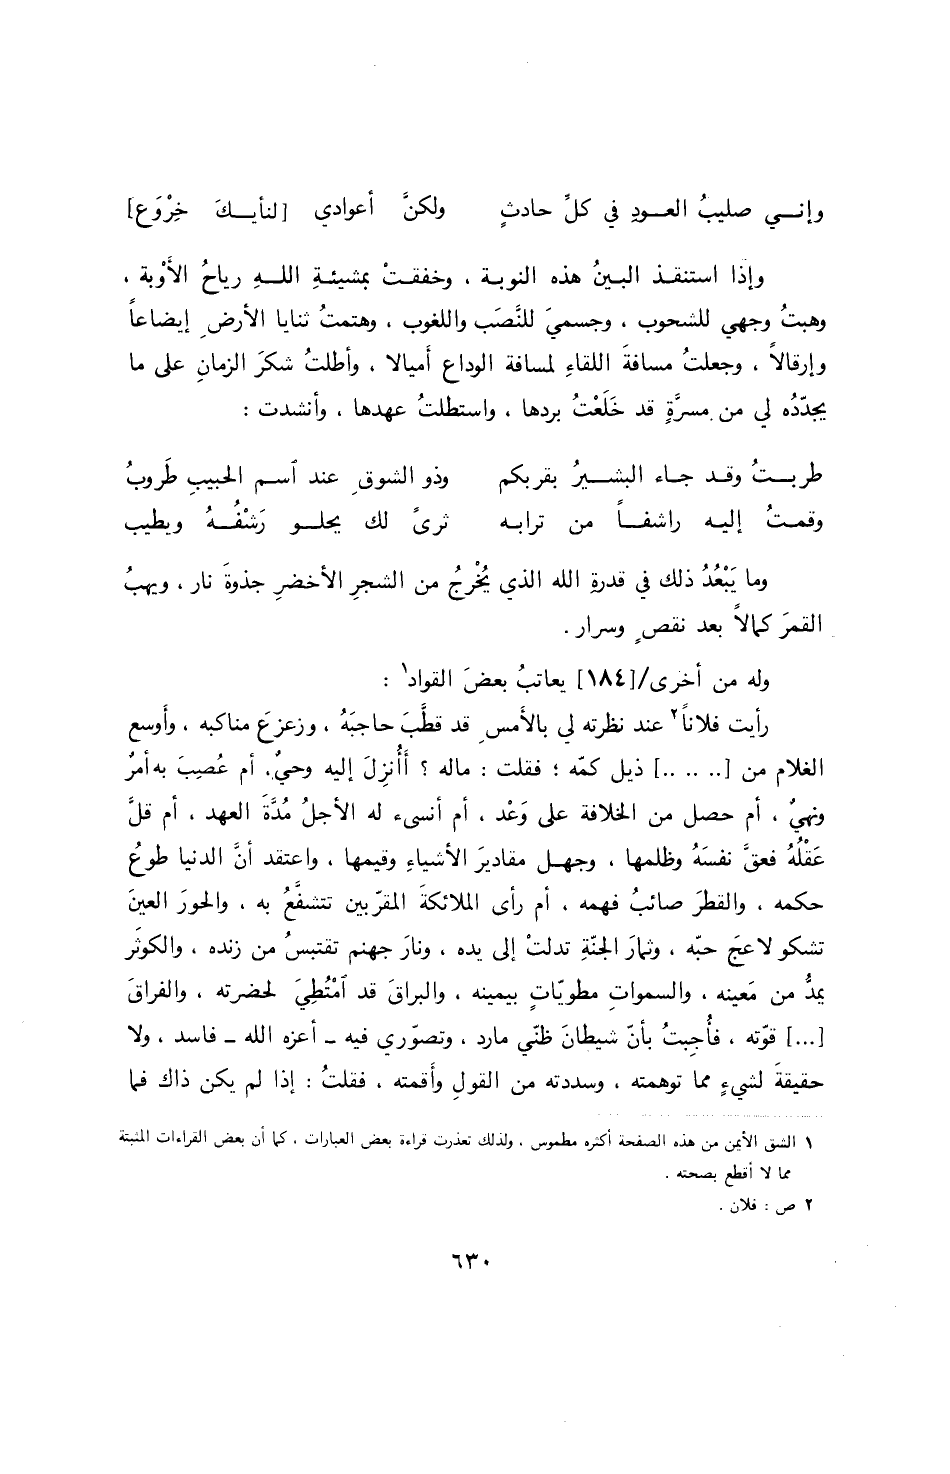 وإنـي صليبُ العـودِ في كلِّ حادثٍ ولكنَّ أعوادي [لنأيـكَ خِرْوَع]
وإذا استنقـذ البـينُ هذه النوبـة ، وخفقـتْ بمشيئـةِ اللـهِ رياحُ الأَوْبة ،
وهبتُ وجهي للشحوب ، وجسميَ للنَّصَب واللغوب ، وهتمتُ ثنايا الأرضِ إيضاعاً
وإرقالاً ، وجعلتُ مسافةَ اللقاءِ لمسافة الوداع أميالا ، وأطلتُ شكرَ الزمانِ على ما
يجدّدُه لي من مسرَّةٍ قد خَلَعْتُ بردها ، واستطلتُ عهدها ، وأنشدت :
طربـتُ وقـد جـاء البشـيرُ بقربكم وذو الشوقِ عند ٱسـم الحبيبِ طَروبُ
وقمـتُ إليـه راشفـاً من ترابـه ثرىً لك يحلـو رَشْفُـهُ ويطيب
وما يَبْعُدُ ذلك في قدرةِ الله الذي يُخْرِجُ من الشجرِ الأخضرِ جذوةَ نار ، ويهبُ
القمرَ كمالاً بعد نقصٍ وسرار .
وله من أخرى/[١٨٤] يعاتبُ بعضَ القواد١ :
رأيت فلاناً٢ عند نظرته لي بالأَمسِ قد قطَّبَ حاجبَهُ ، وزعزعَ مناكبه ، وأوسع
الغلام من [.. .. ..] ذيل كمّه ؛ فقلت : ماله ؟ أَأُنزِلَ إليه وحيٌ، أم عُصِبَ به أمرٌ
ونهيٌ ، أم حصل من الخلافة على وَعْد ، أم أنسىء له الأجلُ مُدَّةَ العهد ، أم قلَّ
عَقْلُهُ فعقَّ نفسَهُ وظلمها ، وجهـل مقاديرَ الأشياءِ وقيمها ، واعتقد أنَّ الدنيا طوعُ
حكمه ، والقطرَ صائبُ فهمه ، أم رأى الملائكةَ المقرّبين تتشفَّعُ به ، والحورَ العينَ
تشكو لاعجَ حبّه ، وثمارَ الجنّةِ تدلتْ إلى يده ، ونارَ جهنم تقتبسُ من زنده ، والكوثَر
يمدُّ من مَعينه ، والسمواتِ مطويّاتٍ بيمينه ، والبراقَ قد ٱمْتُطِيَ لحضرته ، والفراقَ
[...] قوّته ، فأُجبتُ بأنّ شيطانَ ظنّي مارد ، وتصوّري فيه ــ أعزه الله ــ فاسد ، ولا
حقيقةَ لشيءٍ مما توهمته ، وسددته من القولِ وأقمته ، فقلتُ : إذا لم يكن ذاك فما
١ الشق الأيمن من هذه الصفحة أكثره مطموس ، ولذلك تعذرت قراءة بعض العبارات ، كما أن بعض القراءات المثبتة
مما لا أقطع بصحته .
٢ ص : فلان .
٦٣٠